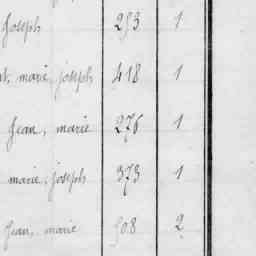 Joseph 253 1
marie, joseph 418 1
Jean, marie 276 1
marie, joseph 373 1
Jean, marie 508 2